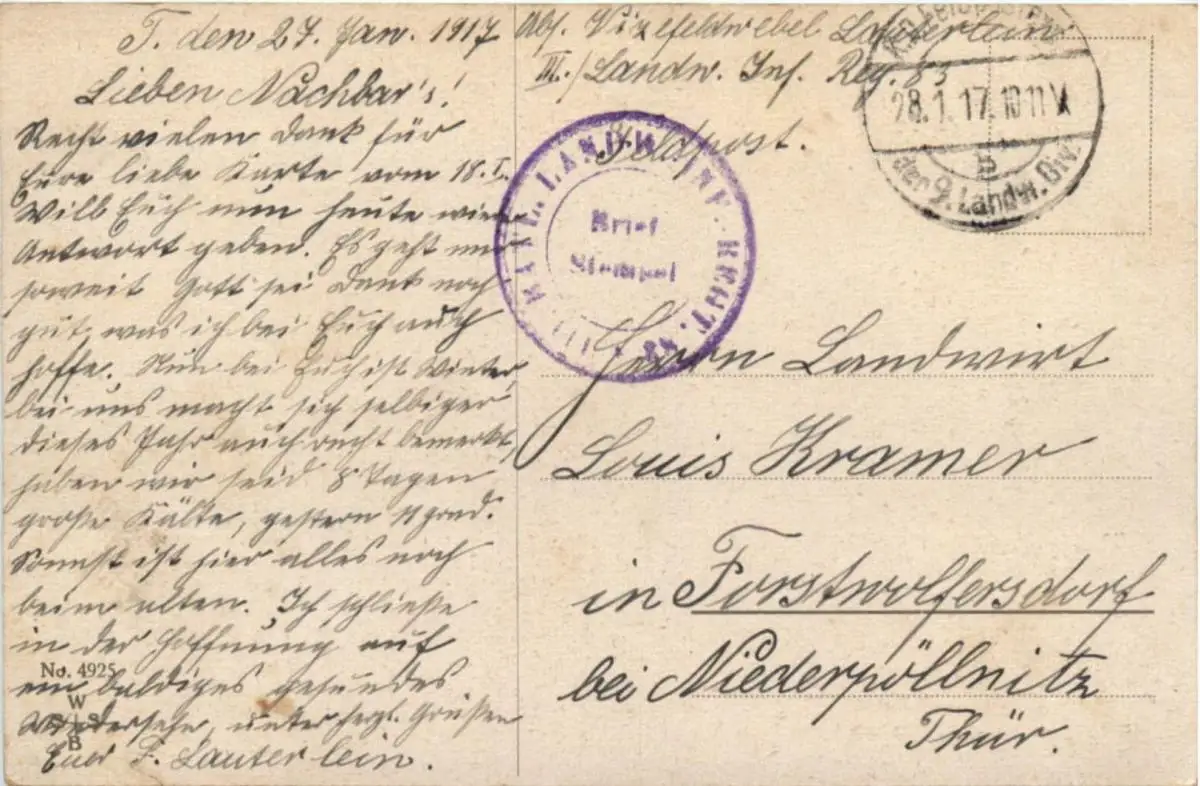 T. den 27. Jan. 1917
Lieben Nachbar's!
Recht vielen Dank für
Eure liebe Karte vom 18.I.
Will Euch nun heute wieder
Antwort geben. Es geht mir
soweit Gott sei Dank noch
gut, was ich bei Euch auch
hoffe. Nun bei Euch ist Winter,
bei uns macht sich selbiger
dieses Jahr auch recht bemerkt,
haben wir seid 8 Tagen
große Kälte, gestern 11 grad.
Sonst ist hier alles noch
beim alten. Ich schließe
in der Hoffnung auf
ein baldiges gesundes
Wiedersehn, unter herzl. Grüßen
Euer F. Lauterlein.
No. 4925
W
S S
B
Abs. Vizefeldwebel Lauterlein
III./Landw. Inf. Reg. 83
Feldpost.
28.1.17. 10-11 V
b
der 9. Landw. Div.
III. BATL. LANDW. INF. REGT.
Brief
Stempel
Herrn Landwirt
Louis Kramer
in Forstwolfersdorf
bei Niederpöllnitz
Thür.